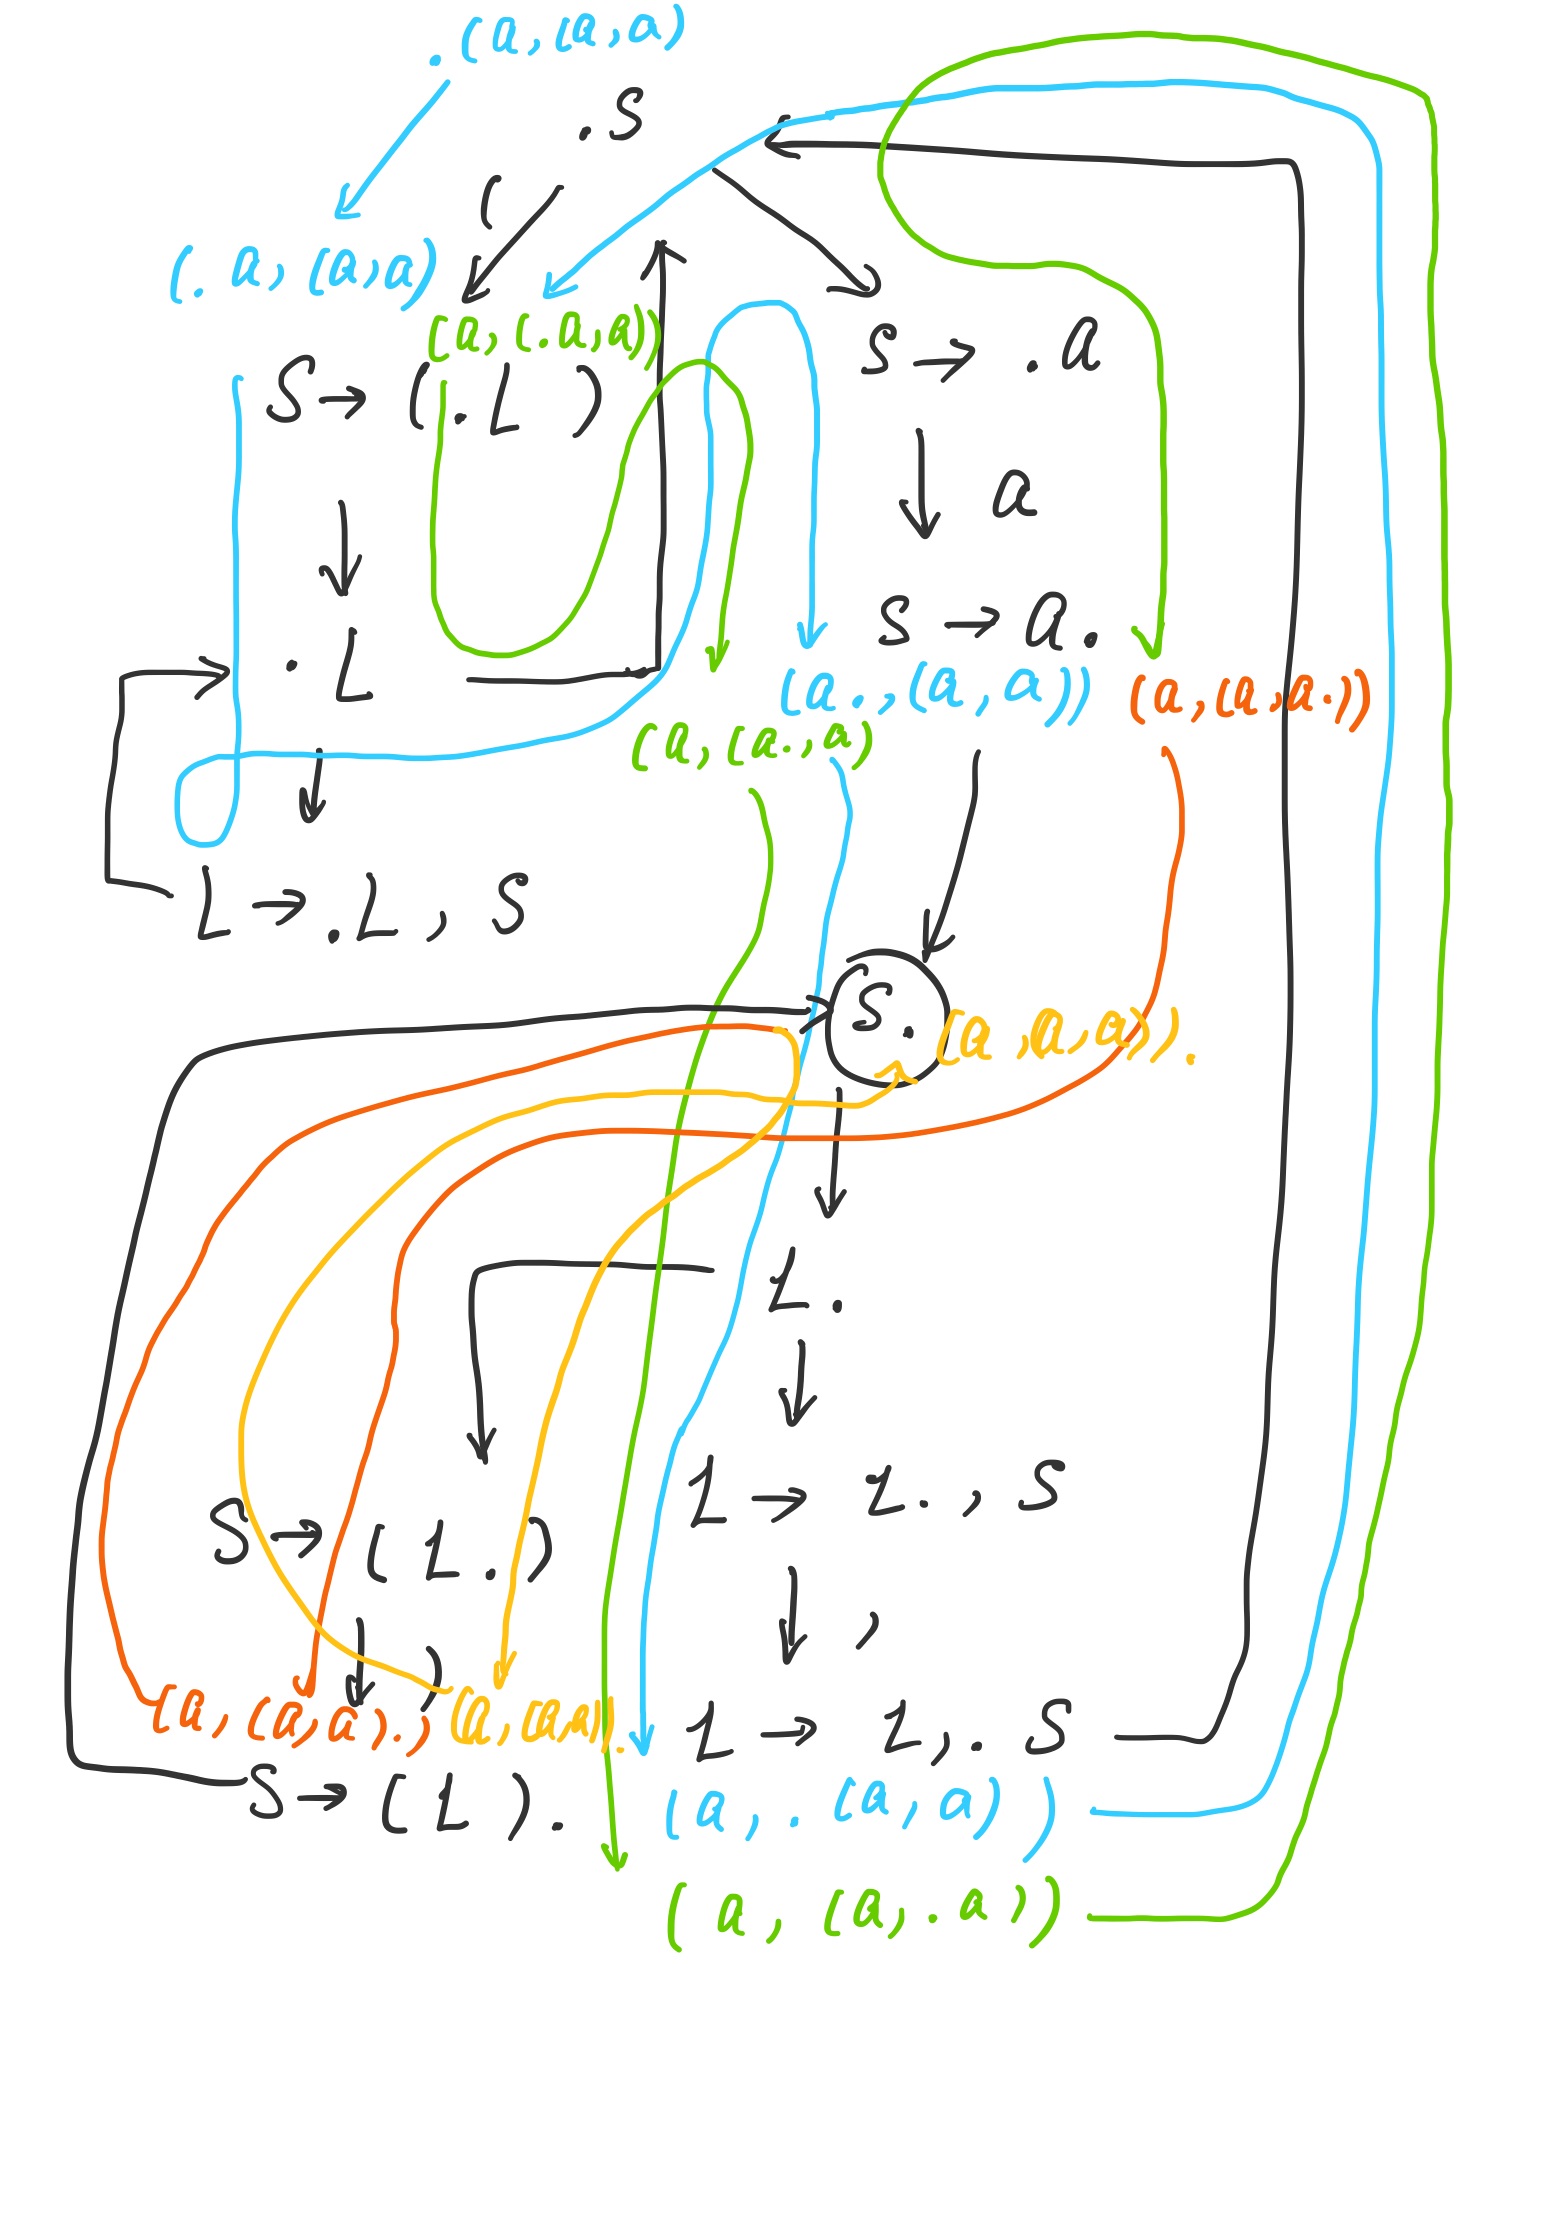 .(a,(a,a)
.S
(
(.a,(a,a)
(a,(.a,a))
S→.a
S→(.L)
a
S→a.
.L
(a.,(a,a))
(a,(a,a.))
(a,(a.,a)
L→.L,S
S.
(a,(a,a)).
L.
L→L.,S
S→(L.)
,
)
(a,(a,a).)
(a,(a,a)).
L→L,.S
S→(L).
(a,.(a,a))
(a,(a,.a))